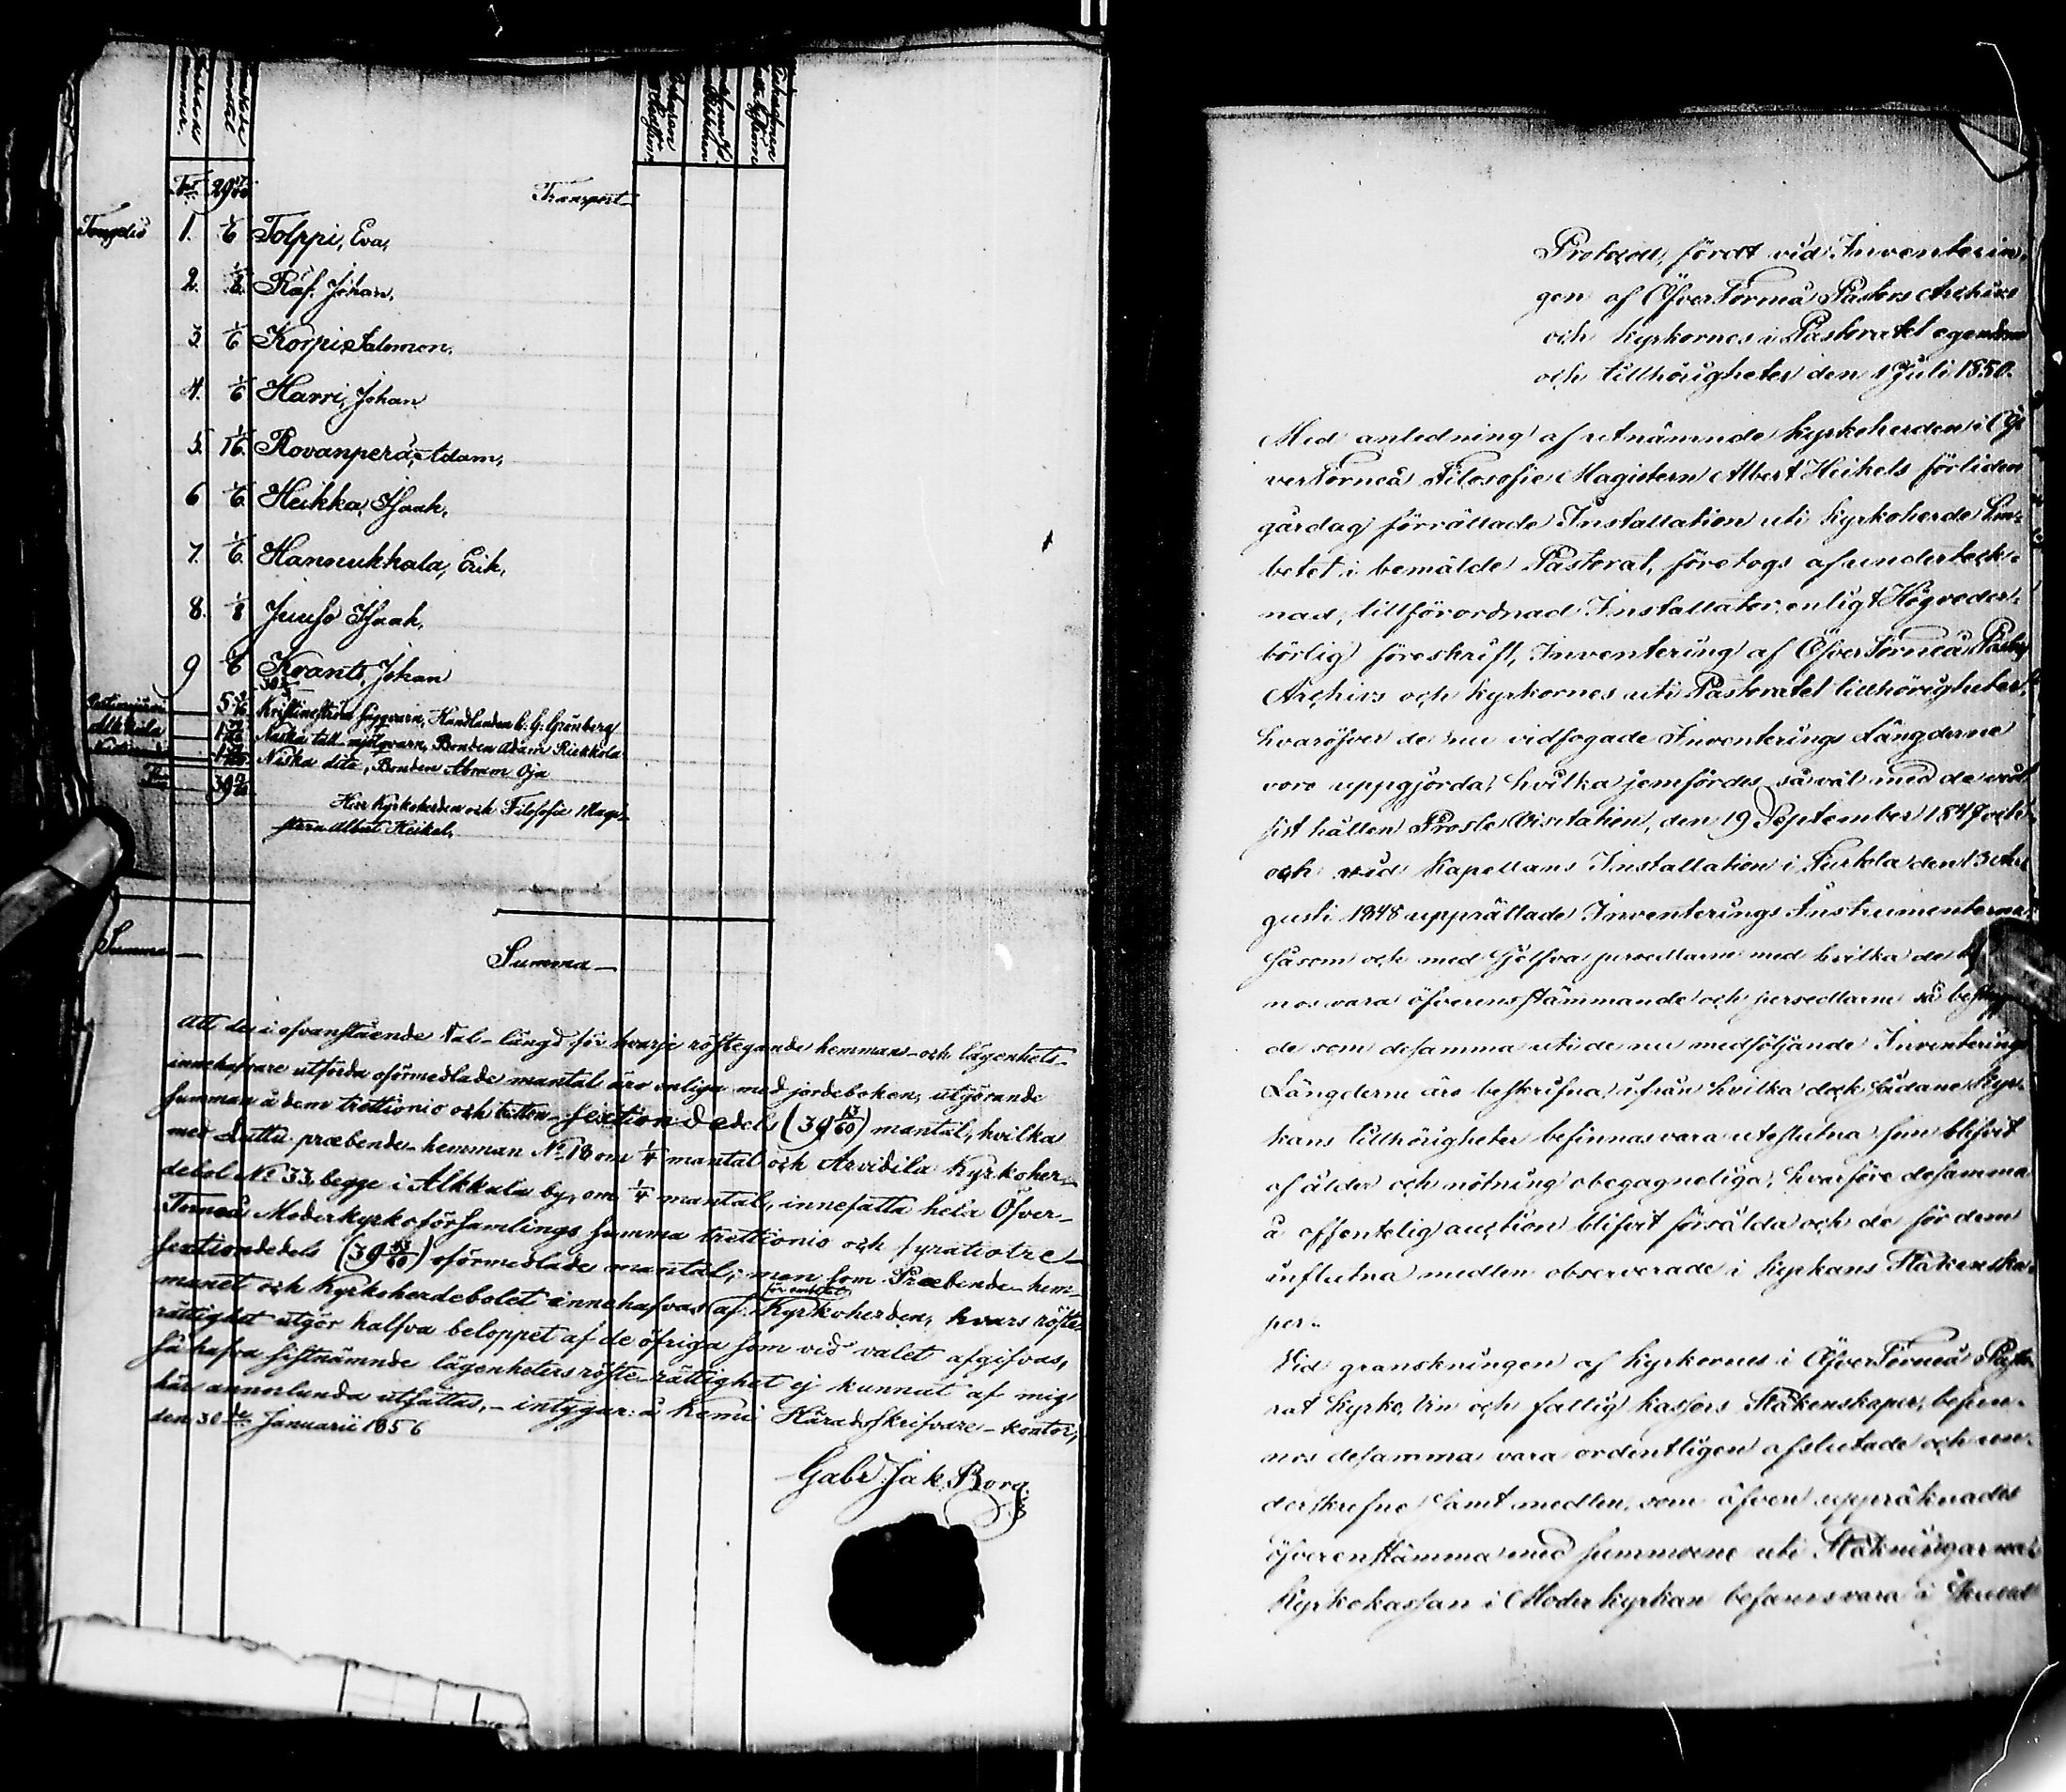 Transport
Tengeliö 1. 1/6 Tolppi, Eva,
2. 1/8 Räf, Johan,
3. 1/6 Korpi, Salomon,
4. 1/6 Harri, Johan
5. 1/16 Rovanperä, Adam,
6 1/6 Heikka, Isaak,
7. 1/6 Hannukkala, Erik,
8. 1/8 Juuso Isaak,
9 1/6 Krants, Johan
Kristinestróms sågqvarn, Handlanden C. G. Grönberg
Alkkula Naska tull-mjölqvarn, Bonden Adam Rickkola
Niska dito, Bonden Abram Oja
Herr Kyrkoherden och Filosofie Magi-
stern Albert Heikel,
Summa — Summa —
Att de i ofvanstående Val-längd för hvarje röstegande hemmans- och lägenhets-
innehafvare utförda oförmedlade mantal äro enliga med jordeboken, utgörande
summan å dem trettionio och tretton-sextiondedels (39 13/60) mantal, hvilka
med Lutta præbende-hemman No 18 om 1/4 mantal och Arvidila Kyrkoher-
debol No 33, begge i Alkkula by, om 1/4 mantal, innefatta hela Öfver-
Torneå Moderkyrkoförsamlings summa trettionio och fyratiotre-
sextiondedels (39 43/60) oförmedlade mantal; men som Præbende-hem-
manet och Kyrkoherdebolet innehafvas af Kyrkoherden, hvars röste-
rättighet utgör halfva beloppet af de öfriga som vid valet afgifvas,
så hafva sistnämnde lägenheters röste-rättighet ej kunnat af mig
här annorlunda utsättas, - intygar: å Kemi Häradsskrifvare-kontor,
den 30de Januarii 1856
Gabr. Jak. Borg.
Protocoll, fördt vid Inventerin-
gen af ÖfverTorneå Pastors Archiv
och Kyrkornes i Pastoratet egendom
och tillhörigheter den 1 Juli 1850.
Med anledning af utnämnde Kyrkoherden i Öf-
verTorneå Filosofie Magistern Albert Heikels förliden
gårdag förrättade Installation uti Kyrkoherde Em-
betet i bemälde Pastorat, företogs af underteck-
nad, tillförordnad Installator, enligt Högveder-
börlig föreskrift, Inventering af ÖfverTorneå Pastors
Archivs och Kyrkornes uti Pastoratet tillhörigheter,
hvaröfver de nu vidfogade Inventerings Längderne
voro uppgjorda, hvilka jemfördes så väl med de vid
sist hållen Proste Visitation, den 19 September 1847 och
och vid Kapellans Installation i Turtola den 13 Au-
gusti 1848 upprättade Inventerings Instrumenterne,
såsom och med sjelfva persedlarne med hvilka de
nos vara öfverensstämmande och persedlarne så
de som desamma uti de nu medföljande Inventerings
Längderne äro beskrifna, ifrån hvilka dock sådane Kyr-
kans tillhörigheter befinnas vara uteslutna som blifvit
af ålder och nötning obegagneliga, hvarföre desamma
å offentelig auction blifvit försålda och de för dem
influtna medlen observerade i Kyrkans Räkenska-
per.
Vid granskningen af Kyrkornes i ÖfverTorneå Pasto-
rat Kyrko, Vin och fattig kassors Räkenskaper, befun-
nos desamma vara ordentligen afslutade och un-
derskrefne samt medlen, som äfven uppräknades
öfverenstämma med summorne uti Räkningarna.
Kyrkokassan i Moderkyrkan befanns vara i